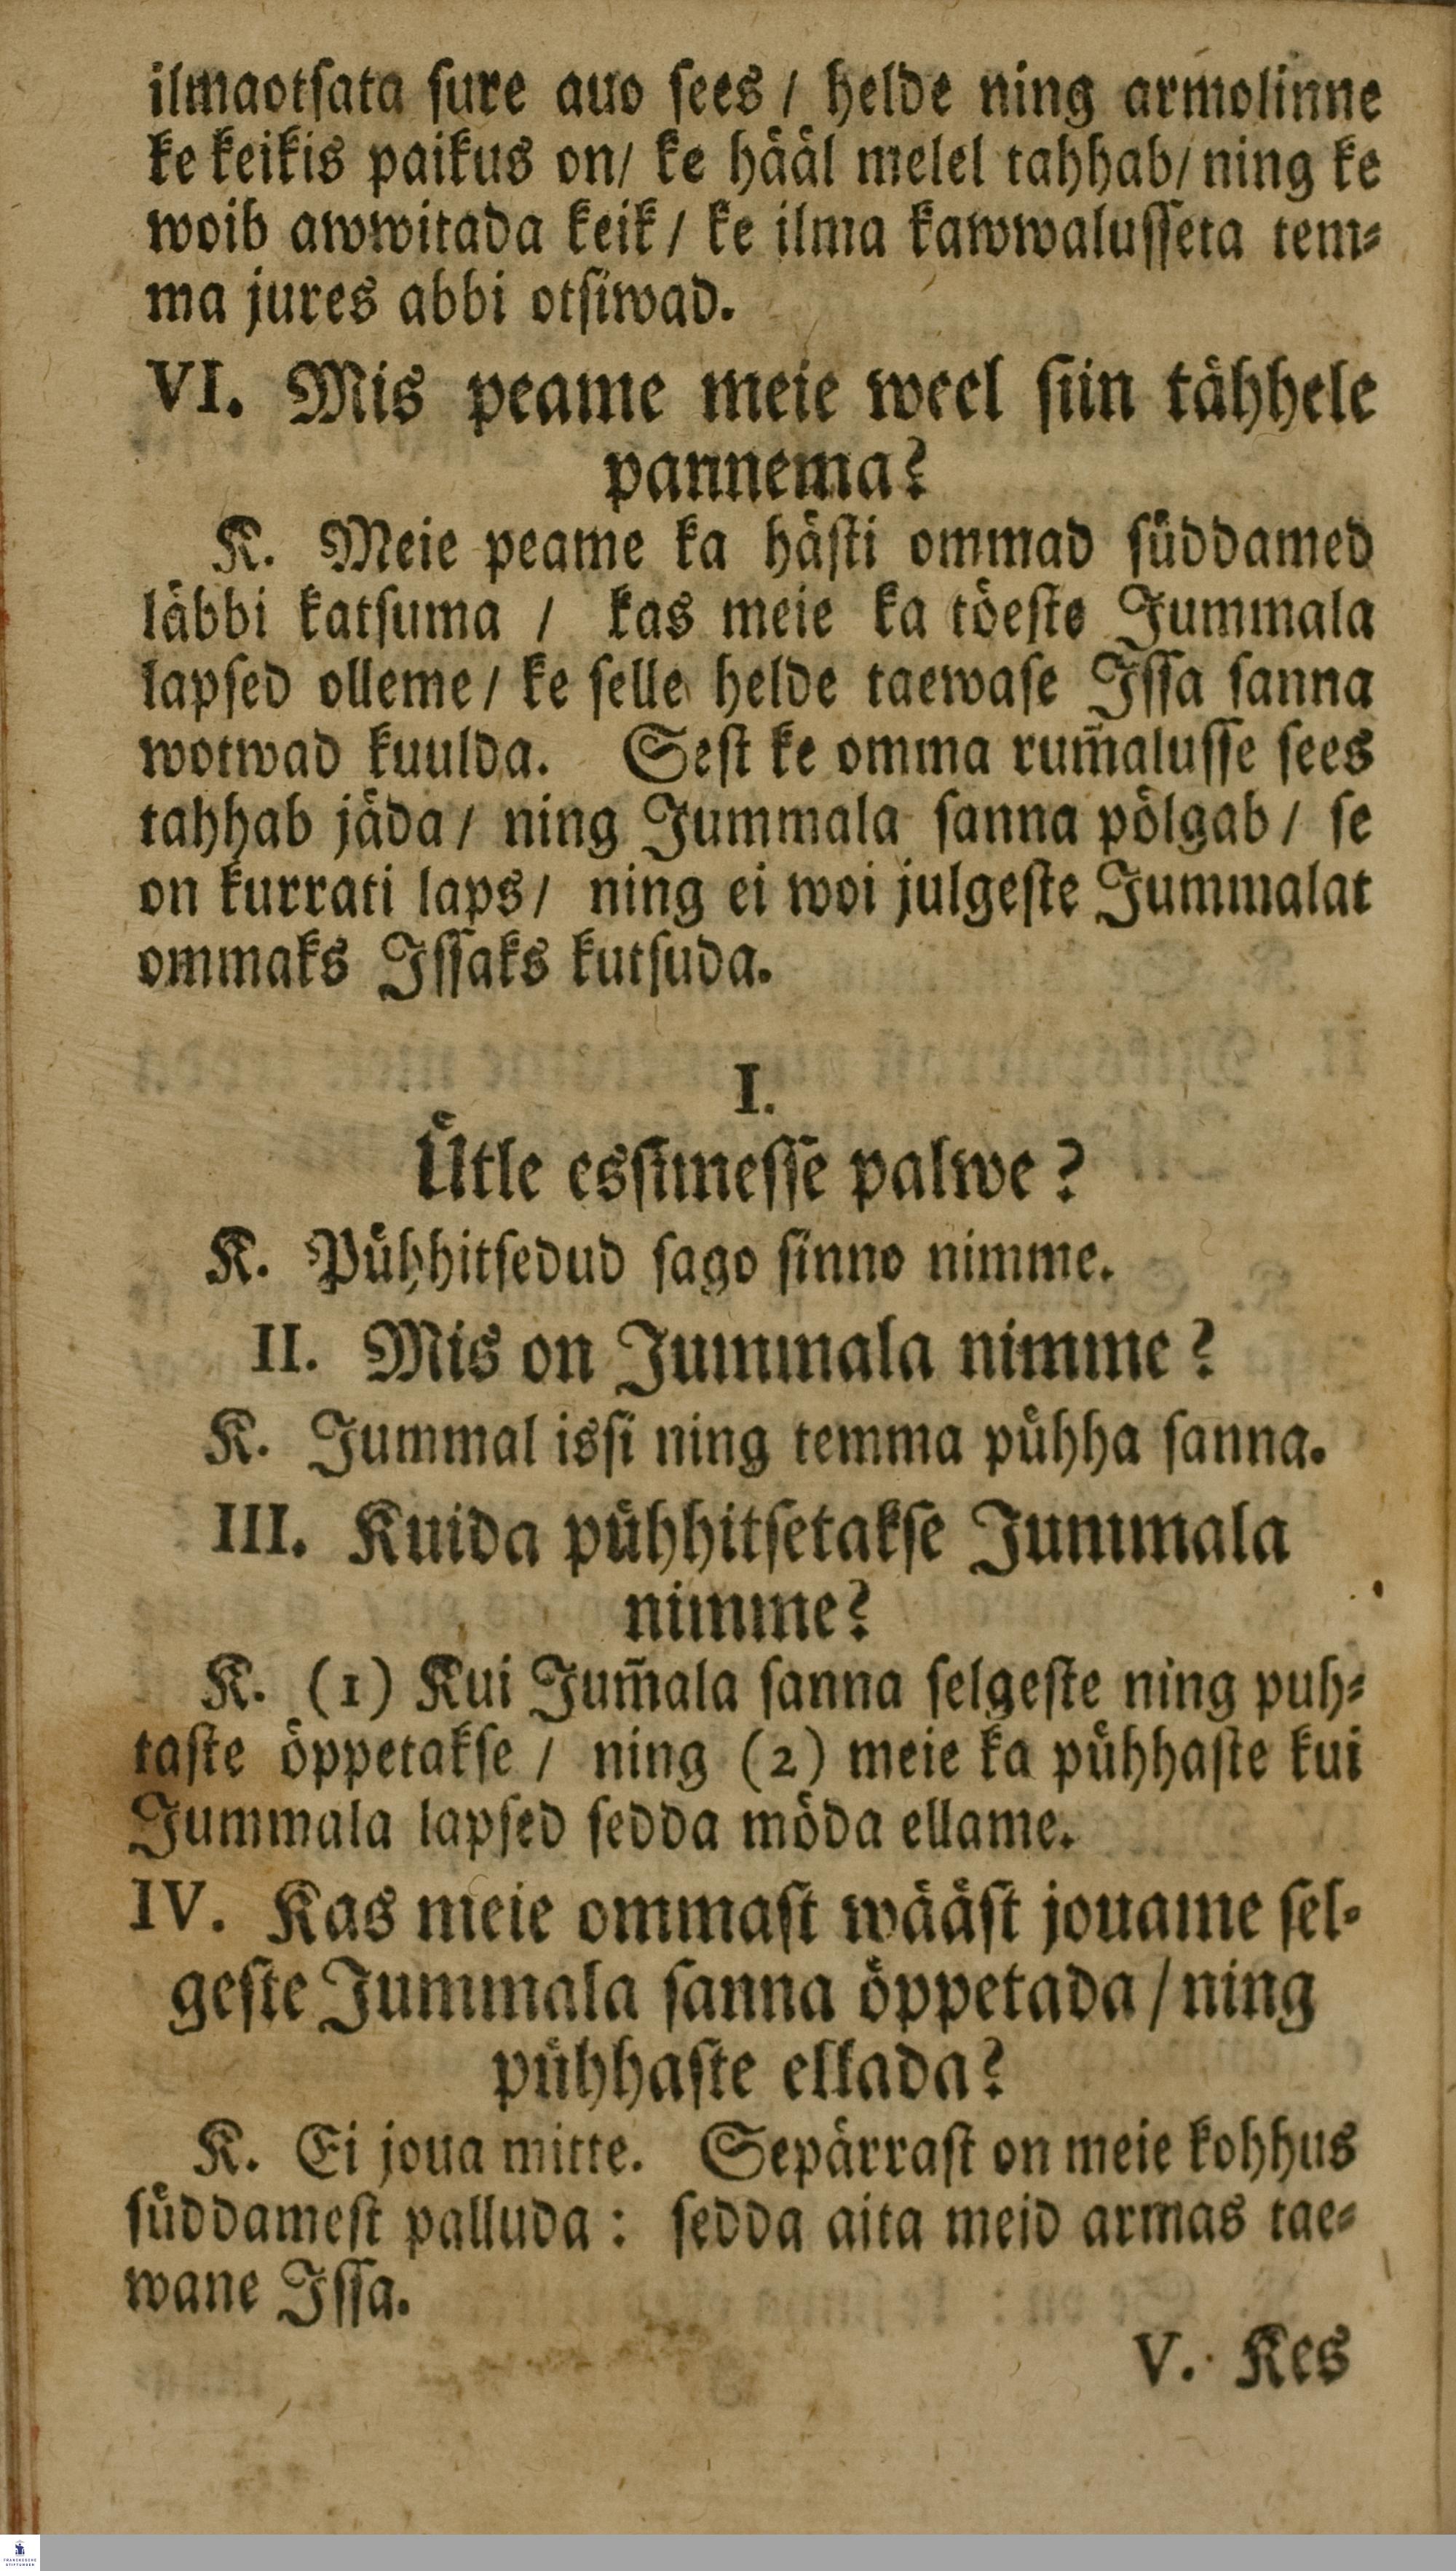 ilmaotsata sure auo sees / helde ning armolinne
ke keikis paikus on/ ke hääl melel tahhab/ ning ke
woib awwitada keik / ke ilma kawwalusseta tem-
ma jures abbi otsiwad.
VI. Mis peame meie weel siin tähhele
pannema?
K. Meie peame ka hästi ommad süddamed
läbbi katsuma / kas meie ka töeste Jummala
lapsed olleme / ke selle helde taewase Issa sanna
wotwad kuulda. Sest ke omma rum̄alusse sees
tahhab jäda / ning Jummala sanna pölgab / se
on kurrati laps / ning ei woi julgeste Jummalat
ommaks Issaks kutsuda.
I.
Ütle essimesse palwe?
K. Pühhitsedud sago sinno nimme.
II. Mis on Jummala nimme?
K. Jummal issi ning temma pühha sanna.
III. Kuida pühhitsetakse Jummala
nimme?
K. (1) Kui Jum̄ala sanna selgeste ning puh-
taste öppetakse / ning (2) meie ka pühhaste kui
Jummala lapsed sedda möda ellame.
IV. Kas meie ommast wääst jouame sel-
geste Jummala sanna öppetada / ning
pühhaste ellada?
K. Ei joua mitte. Sepärrast on meie kohhus
süddamest palluda: sedda aita meid armas tae-
wane Issa.
V. Kes
FRANCKESCHE
STIFTUNGEN